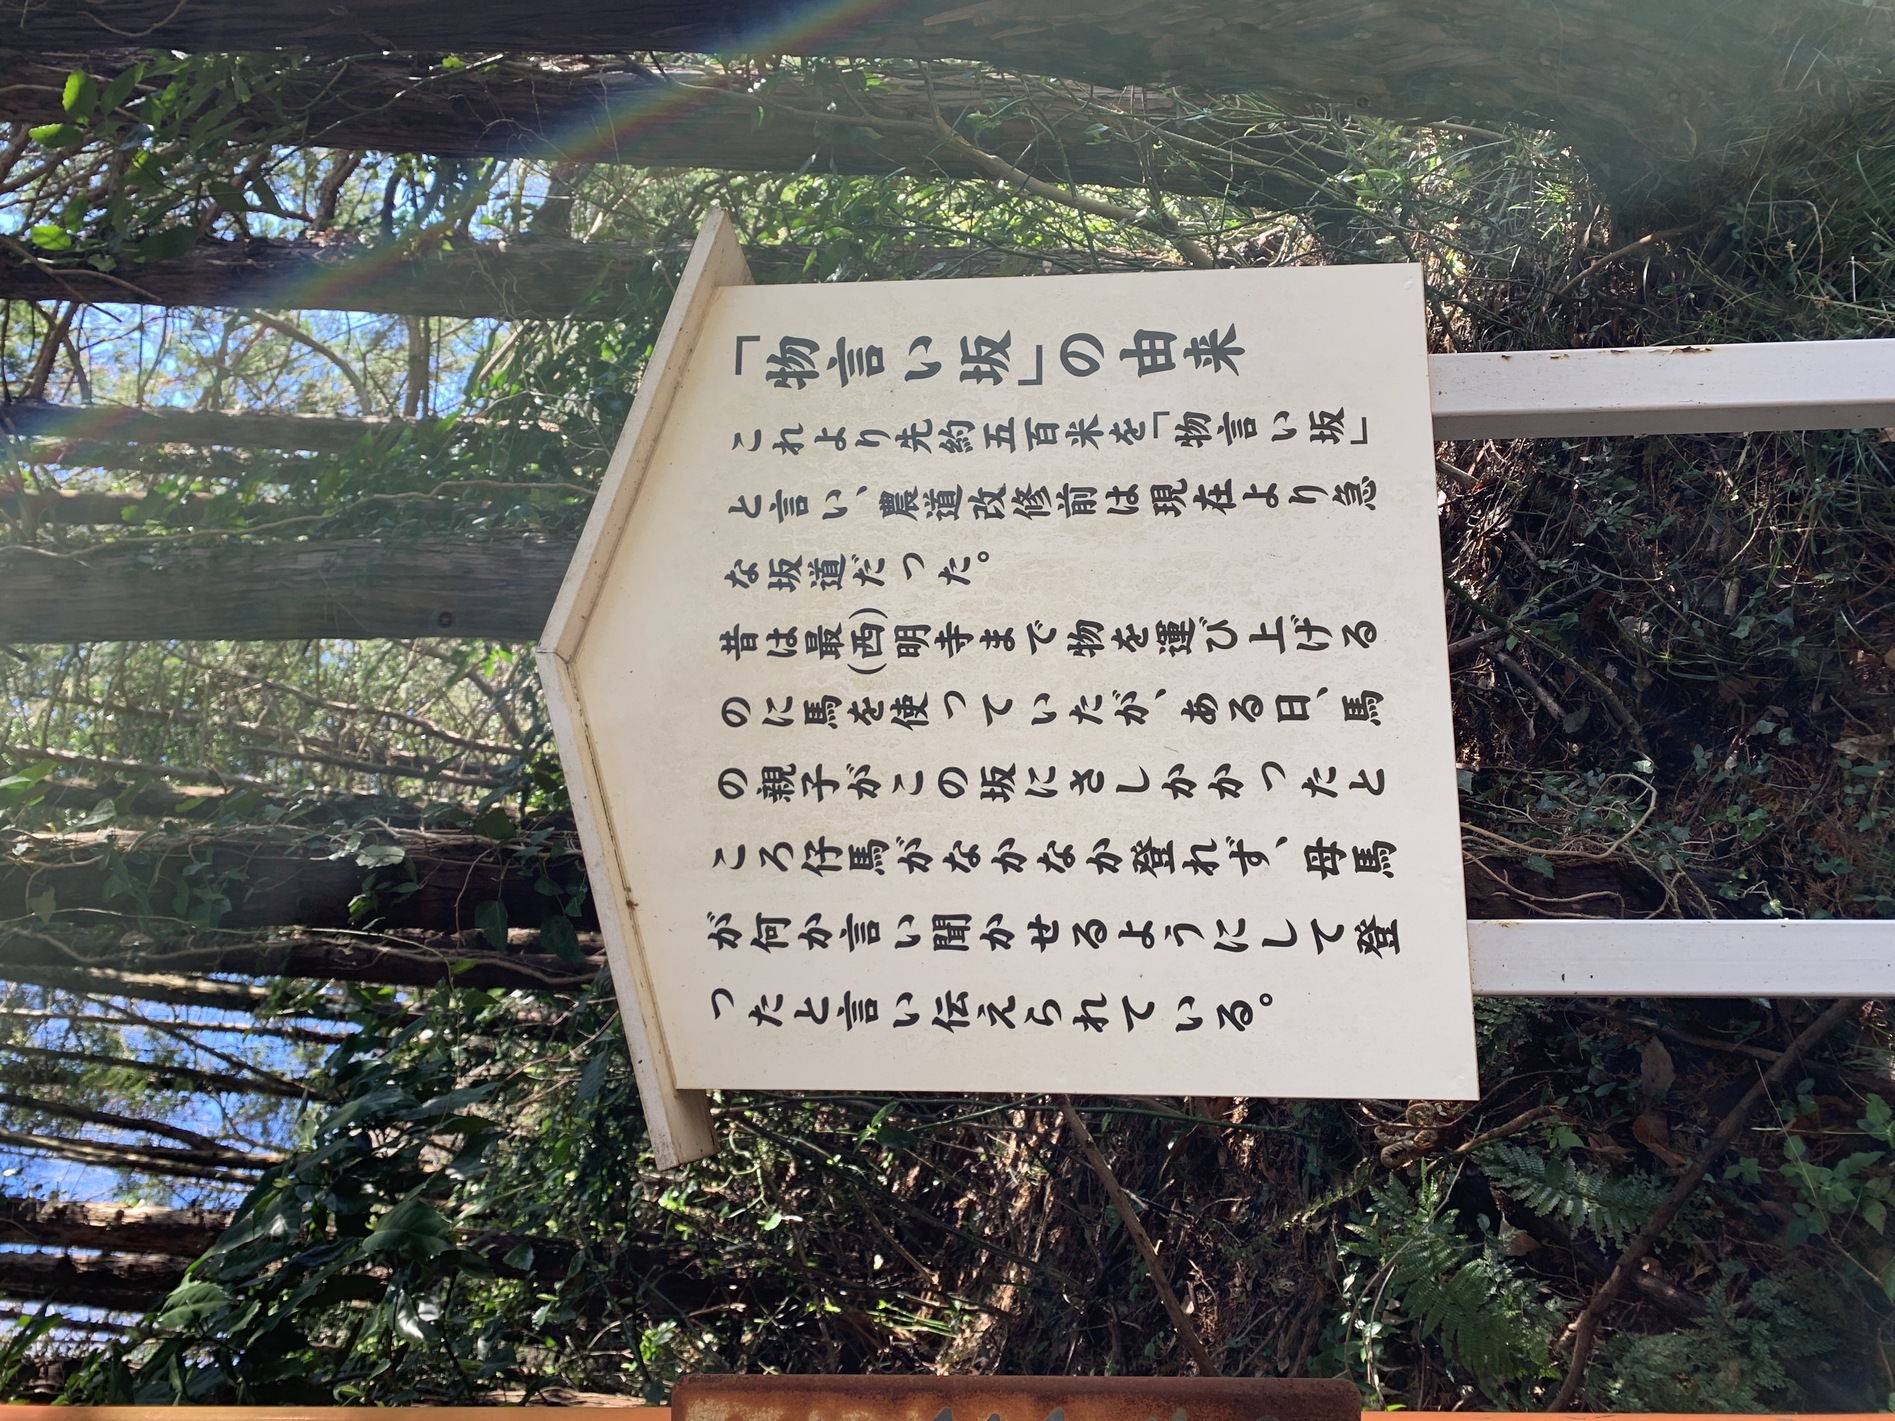 「物言い坂」の由来
これより先約五百米を「物言い坂」
と言い、農道改修前は現在より急
な坂道だった。
昔は最(西)明寺まで物を運び上げる
のに馬を使っていたが、ある日、馬
の親子がこの坂にさしかかったと
ころ仔馬がなかなか登れず、母馬
が何か言い聞かせるようにして登
ったと言い伝えられている。